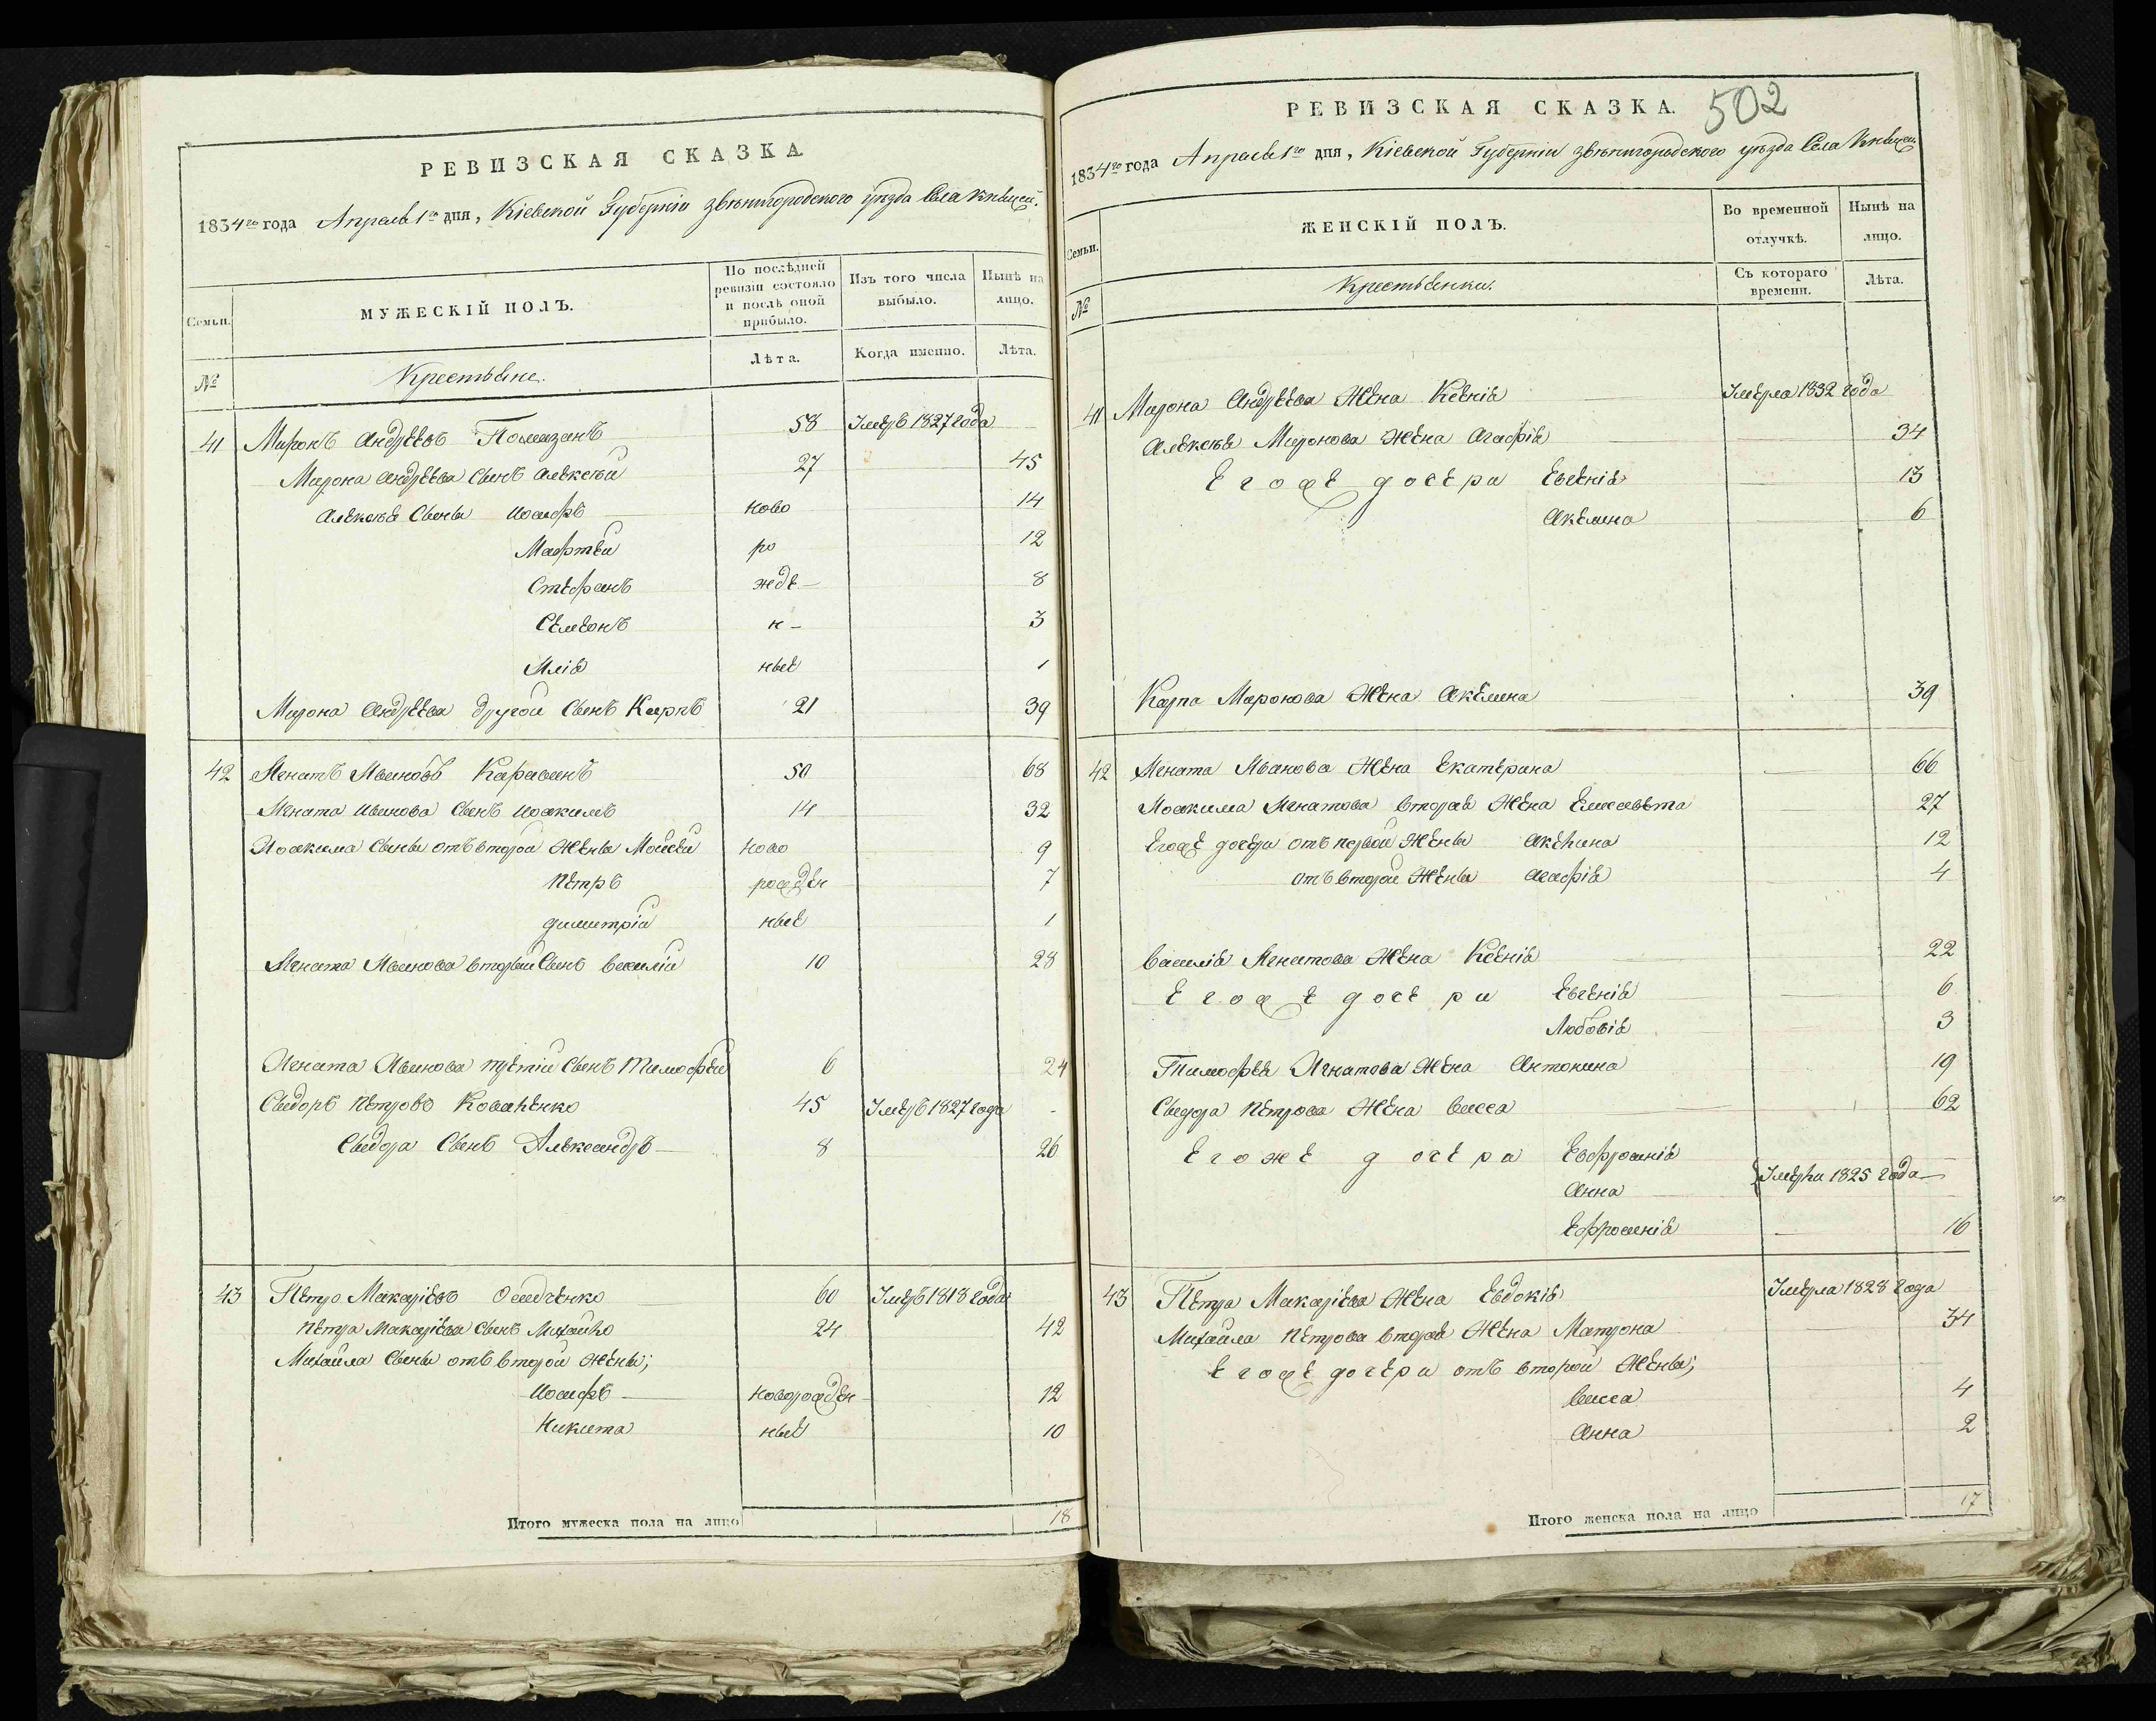 РЕВИЗСКАЯ СКАЗКА
1834го года Апреля 1го дня, Кіевской Губерніи звѣнигородского уѣзда Села
Семьи.
МУЖЕСКІЙ ПОЛЪ.
По послѣдней ревизіи состояло и послѣ оной прибыло.
Изъ того числа выбыло.
Нынѣ на лицо.
№
Крестьяне.
Лѣта.
Когда именно.
Лѣта.
41 Миронъ Андрѣевъ 58 Умеръ 1827 года
Мирона Андрѣева Сынъ Алексѣй 27 45
Алексѣя Сыны Иосифъ ново 14
Мафтей ро 12
Стефанъ жде 8
Семенъ н 3
Илія ные 1
Мирона Андрѣева другой Сынъ Карпъ 21 39
42 Игнатъ Ивановъ 50 68
Игната Иванова Сынъ Иоакимъ 14 32
Иоакима Сыны отъ второй Жены Мойсей ново 9
Петръ рожден 7
димитрій ные 1
Игната Иванова вторый Сынъ василій 10 28
Игната Иванова третій Сынъ Тимофей 6 24
Сидоръ Петровъ Коваленко 45 Умеръ 1827 года
Сидора Сынъ Александръ 8 26
43 Петро Макаріевъ 60 Умеръ 1818 года
Петра Макаріева Сынъ Михайло 24 42
Михайла Сыны отъ второй жены;
Иосифъ новорожден 12
Никита ные 10
Итого мужеска пола на лицо 18
РЕВИЗСКАЯ СКАЗКА. 502
1834го года Апреля 1го дня, Кіевской Губерніи звѣнигородского уѣзда Села
Семьи.
ЖЕНСКІЙ ПОЛЪ.
Во временной отлучкѣ.
Нынѣ на лицо.
№
Крестьянки.
Съ котораго времени.
Лѣта.
41 Мирона Андрѣева Жена Ксенія Умерла 1832 года
Алексѣя Миронова жена Агафія 34
Егоже дочери Евгенія 13
Акилина 6
Карпа Миронова Жена Акилина 39
42 Игната Иванова Жена Екатерина 66
Иоакима Игнатова вторая Жена Елисавѣта 27
Егоже дочери отъ первой Жены Акелина 12
отъ второй Жены Агафія 4
василія Игнатова Жена Ксенія 22
Егоже дочери Евгенія 6
Любовія 3
Тимофея Игнатова Жена Антонина 19
Сидора Петрова Жена васса 62
Егоже дочери Евфросинія
Анна Умерли 1825 года
Ефросинія 16
43 Петра Макаріева Жена Евдокія Умерла 1828 года
Михайла Петрова вторая Жена Матрона 34
Егоже дочери отъ второй Жены;
васса 4
Анна 2
Итого женска пола на лицо 17